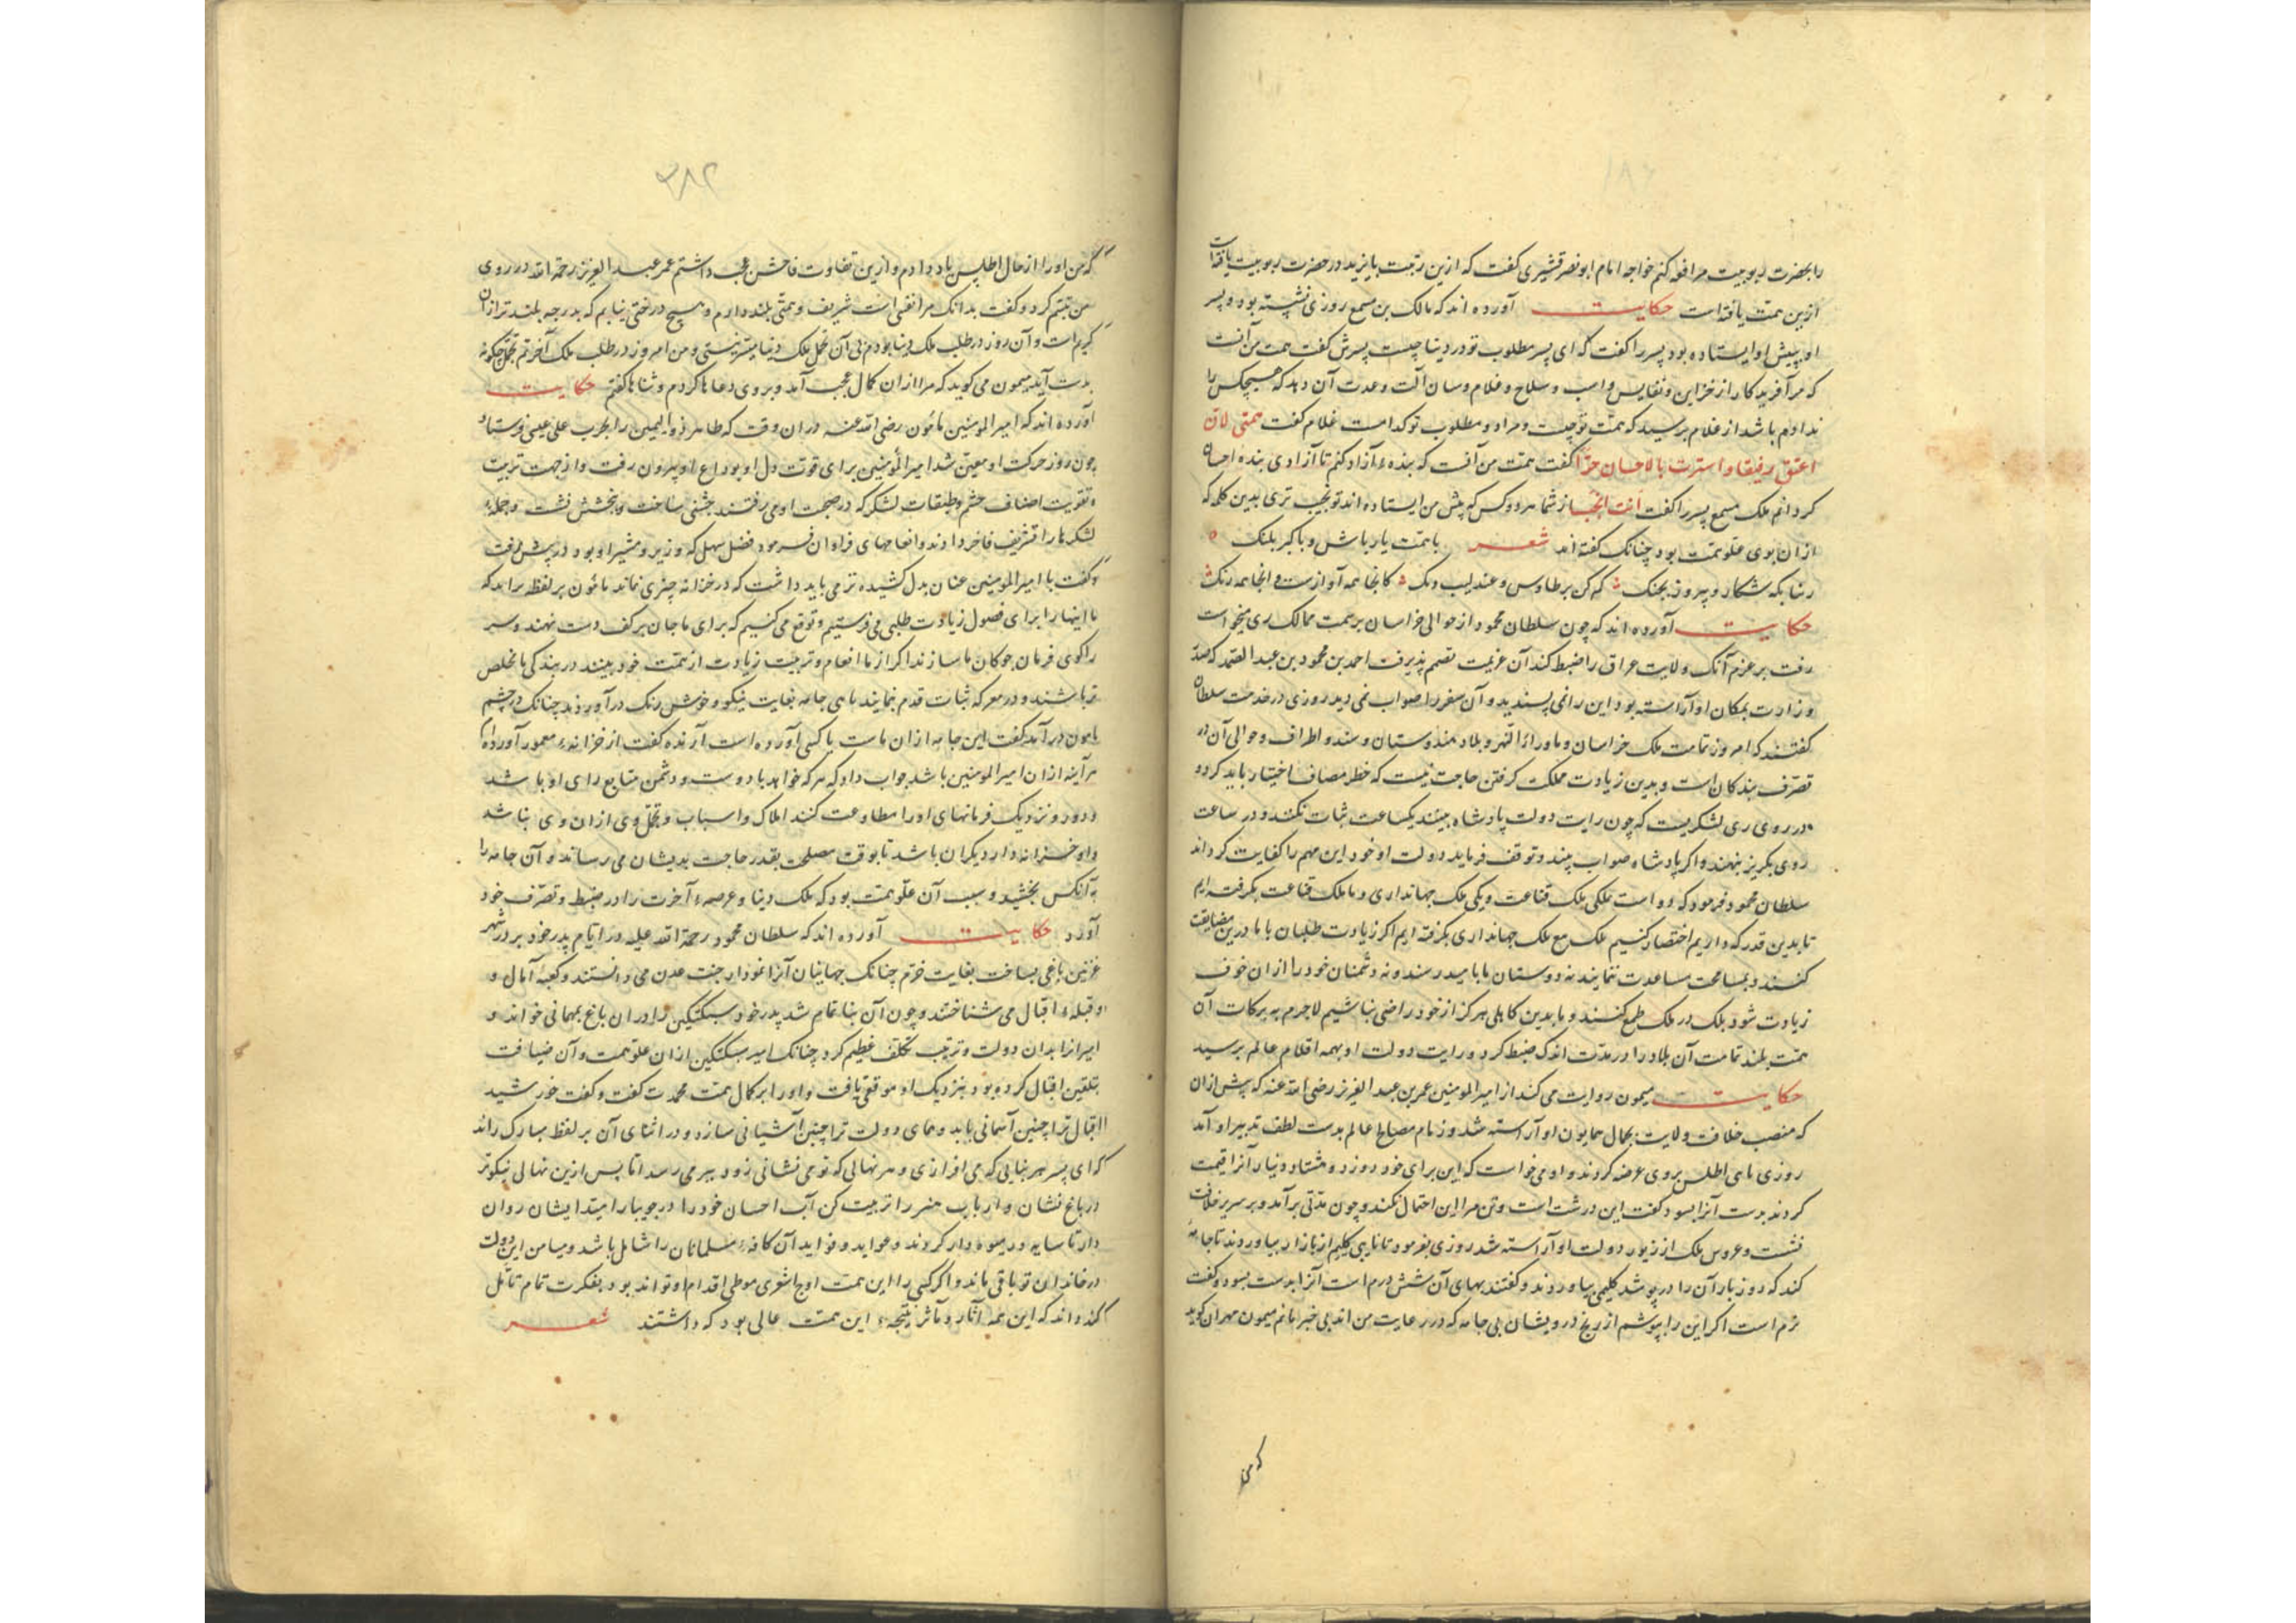 را بحضرت ربوبیت مرافعه کنم خواجه امام ابونصر قشیری گفت که ازین رتبت بایزید در حضرت ربوبیت یافت
ازین همت یافته است حکایت آورده اند که مالک بن مسمع روزی نشسته بود و پسر
او پیش او ایستاده بود پسر را گفت که ای پسر مطلوب تو در دنیا چیست پسرش گفت همت من آنست
که مرا آفریدکار از خزاین و نفایس و اسب و سلاح و غلام و سان آلت و عدت آن دهد که هیچکس را
نداده باشد از غلام پرسید که همت تو چیست و مراد و مطلوب تو کدامست غلام گفت همتی لان
اعتق رفیقا و استرت بالاحسان حرّا گفت همت من آنست که بندهٔ آزاد کنم تا آزادی بنده احسان
کردانم ملک مسمع پسر را گفت انت انجب از شما هر دو کس که پیش من ایستاده اند تو نجیب تری بدین کلمه که
ازان بوی علوّ همت بود چنانک گفته اند شعر باهمت باز باش و با کبر پلنک
زیبا بکه شکار و پیروز بجنک که کن بر طاوس و عندلیب درنک کانجا همه آوازست و انجا همه رنک
حکایت آورده اند که چون سلطان محمود از حوالی خراسان بر سمت ممالک ری میخواست
رفت بر عزم آنک ولایت عراق را ضبط کند آن عزیمت تصمیم پذیرفت احمد بن محمود بن عبد الصمد که صدر
وزارت بمکان او آراسته بود این را نمی پسندید و آن سفر را صواب نمی دید روزی در خدمت سلطان
گفتند که امروز تمامت ملک خراسان و ماوراء النهر و بلاد هندوستان و سند و اطراف و حوالی آن در
تصرّف بندکان است و بدین زیادت مملکت گرفتن حاجت نیست که خطر مصاف اختیار باید کرد و
در روی ری لشکریست که چون رایت دولت پادشاه ببینند یکساعت ثبات نکنند و در ساعت
روی بکریز بنهند و اکر پادشاه صواب بیند و توقف فرماید دولت او خود این مهم را کفایت کرداند
سلطان محمود فرمود که دو است ملکی ملک قناعت و یکی ملک جهانداری و ما ملک قناعت بکرفته ایم
تا بدین قدر که داریم اختصار کنیم ملک مع ملک جهانداری بکرفته ایم اکر زیادت طلبان با ما درین مضایقت
کنند و بمسامحت مساعدت ننمایند نه دوستان ما بامید رسند و نه دشمنان خود را ازان خوف
زیادت شود بلک در ملک طمع کنند و ما بدین کاهلی هرکز از خود راضی نباشیم لاجرم به برکات آن
همت بلند تمامت آن بلاد را در مدّت اندک ضبط کرد و رایت دولت او بهمه اقلام عالم برسید
حکایت میمون روایت می کند از امیر المومنین عمر بن عبد العزیز رضی الله عنه که پیش ازان
که منصب خلافت و ولایت بجمال همایون او آراسته شد و زمام مصالح عالم بدست لطف تدبیر او آمد
روزی جامه اطلس بروی عرضه کردند و او می خواست که این برای خود دوزد و هشتاد دینار آنرا قیمت
کردند بدست آنرا بسود گفت این درشت است و تن مرا این احتمال نکند و چون مدّتی برآمد و بر سریر خلافت
نشست و عروس ملک از زیور دولت او آراسته شد روزی بفرمود تا نایبی کلیم از بازار بیاوردند تا جامهٔ
کند که روز بار آن را درپوشد کلیمی بیاوردند و گفتند بهای آن شش درم است آنرا بدست بسود و گفت
نرم است اکر این را بپوشم از رنج درویشان بی جامه که در رعایت من اند بی خبر مانم میمون مهران کوید
که من
۲۸۲
که من او را از حال اطلس یاد دادم و ازین تفاوت فاحش عجب داشتم عمر عبد العزیز رحمة الله در روی
من تبسّم کرد و گفت بدانک مرا نفسی است شریف و همّتی بلند دارم و هیچ درختی نیابم که بدرجه بلندتر ازان
کیرم است و آن روز در طلب ملک دنیا بودم بی آن تجمل ملک دنیا میسّر نیستی و من امروز در طلب ملک آخرتم تجمل چگونه
بدست آید میمون می کوید که مرا ازان کمال عجب آمد و بروی دعاها کردم و ثناها گفتم حکایت
آورده اند که امیر المومنین مامون رضی الله عنه دران وقت که طاهر ذو الیمینین را بحرب علی عیسی فرستاد
چون روز حرکت او معین شد امیر المومنین برای قوّت دل او بوداع او بیرون رفت و از جهت تربیت
و تقویت اصناف حشم و طبقات لشکر که در صحبت او می رفتند جشنی ساخت و ببخشش نشست و جمله
لشکرها را تشریف فاخر دادند و انعامهای فراوان فرمود فضل سهل که وزیر و مشیر او بود در پیش رفت
و گفت یا امیر المومنین عنان بدل کشیده تر می باید داشت که در خزانه چیزی نماند مامون بر لفظ راند که
ما اینها را برای فصول زیادت طلبی می فرستیم و توقع می کنیم که برای ما جان بر کف دست نهند و سر
را کوی فرمان چوکان ما سازند اکر از ما انعام و تربیت زیادت از همت خود بینند در بندکی ما مخلص
تر باشند و در معرکه ثبات قدم نمایند باری جامه بغایت نیکو و خوش رنک در آوردند چنانک در چشم
مامون درآمد گفت این جامه ازان ماست یا کسی آورده است آرنده گفت از خزانهٔ معمور آورده ام
هر آینه ازان امیر المومنین باشد جواب داد که هر که خواهد باد دوست و دشمن متابع رای او باشد
و دور و نزدیک فرمانهای او را مطاوعت کنند املاک و اسباب و تجمّل وی ازان وی نباشد
و او خزانه دار دیکران باشد تا بوقت مصلحت بقدر حاجت بدیشان می رساند و آن جامه را
بآنکس بخشید و سبب آن علوّ همت بود که ملک دنیا و عرصهٔ آخرت را در ضبط و تصرّف خود
آورد حکایت آورده اند که سلطان محمود رحمة الله علیه در ایّام پدر خود بر در شهر
غزنین باغی بساخت بغایت خرّم چنانک جهانیان آنرا نمودار جنت عدن می دانستند و کعبهٔ آمال و
و قبلهٔ اقبال می شناختند و چون آن بنا تمام شد پدر خود سبکتکین را دران باغ بمهمانی خواند و
امیر را بدان دولت و ترتیب تکلّف عظیم کرد چنانک امیر سبکتکین ازان علوّ همت و آن ضیافت
بتلقین اقبال کرده بود بنزدیک او موقعی یافت و او را بر کمال همت محمدت گفت و گفت خورشید
اقبال ترا چنین آسمانی باید و همای دولت ترا چنین آشیانی سازد و در اثنای آن بر لفظ مبارک راند
که ای پسر هر بنایی که می افرازی و هر نهالی که تو می نشانی زود ببر می رسد اما پس ازین نهالی نیکوتر
در باغ نشان و ارباب هنر را تربیت کن آب احسان خود را در جویبار امید ایشان روان
دار تا سایه ور میوه دار کردند و عواید و فواید آن کافهٔ مسلمانان را شامل باشد و میامن این دولت
در خاندان تو باقی ماند و اکر کسی را این همت اوج اشعری موطی اقدام او تواند بود بفکرت تمام تأمّل
کند و اند که این همه آثار و مآثر نتیجهٔ این همت عالی بود که داشتند شعر